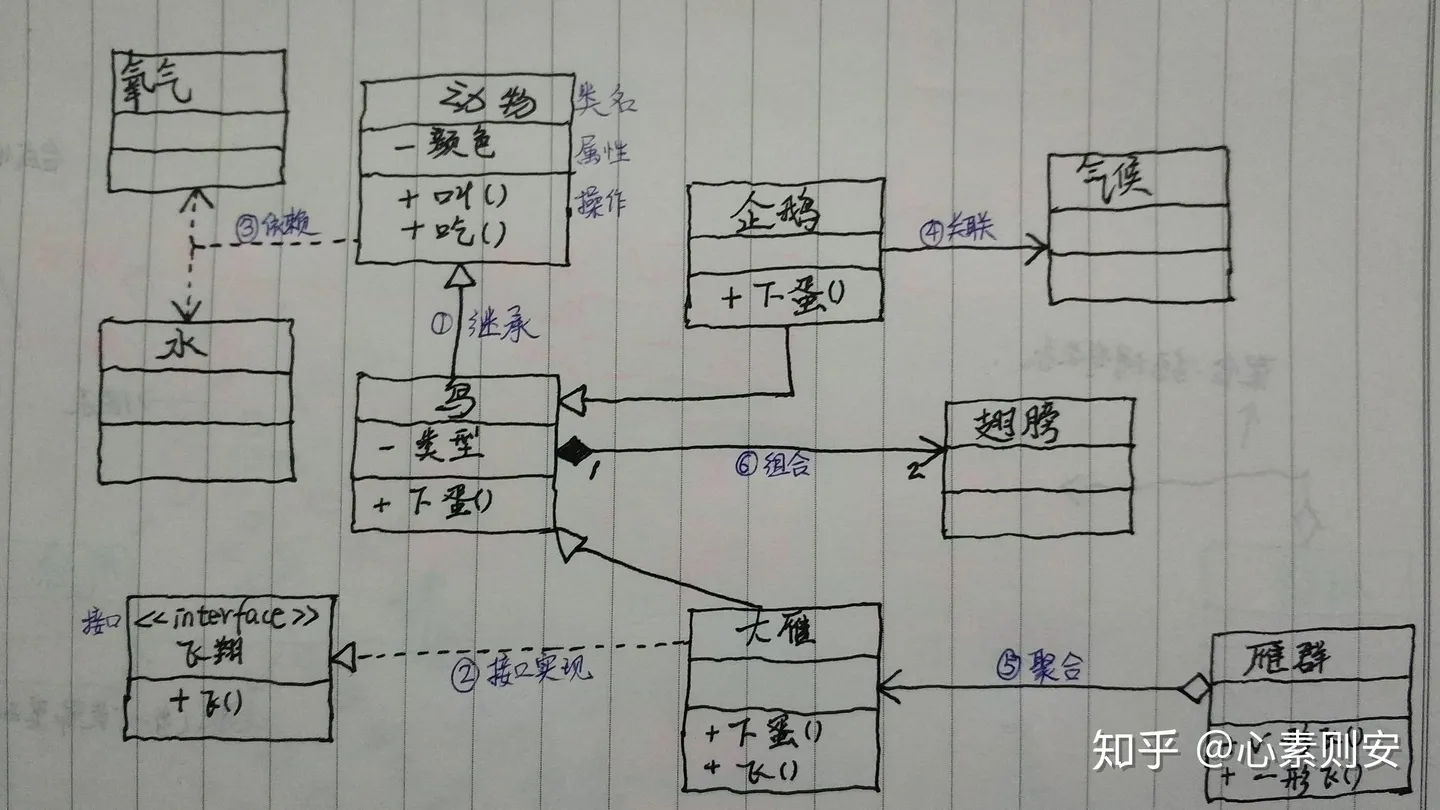 氧气
动物
类名
- 颜色
属性
+ 叫()
操作
+ 吃()
③依赖
企鹅
+ 下蛋()
④关联
气候
水
① 继承
鸟
- 类型
+ 下蛋()
1
⑥组合
2
翅膀
接口
<<interface>>
飞翔
+ 飞()
②接口实现
大雁
+ 下蛋()
+ 飞()
⑤聚合
雁群
+ 一形飞()
知乎 @心素则安